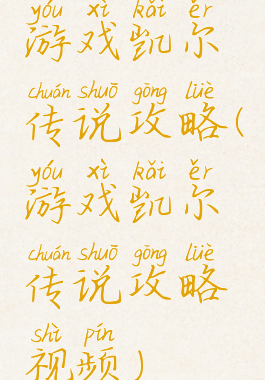 yóu xì kǎi ěr
游戏凯尔
chuán shuō gōng lüè
传说攻略(
yóu xì kǎi ěr
游戏凯尔
chuán shuō gōng lüè
传说攻略
shì pín
视频)